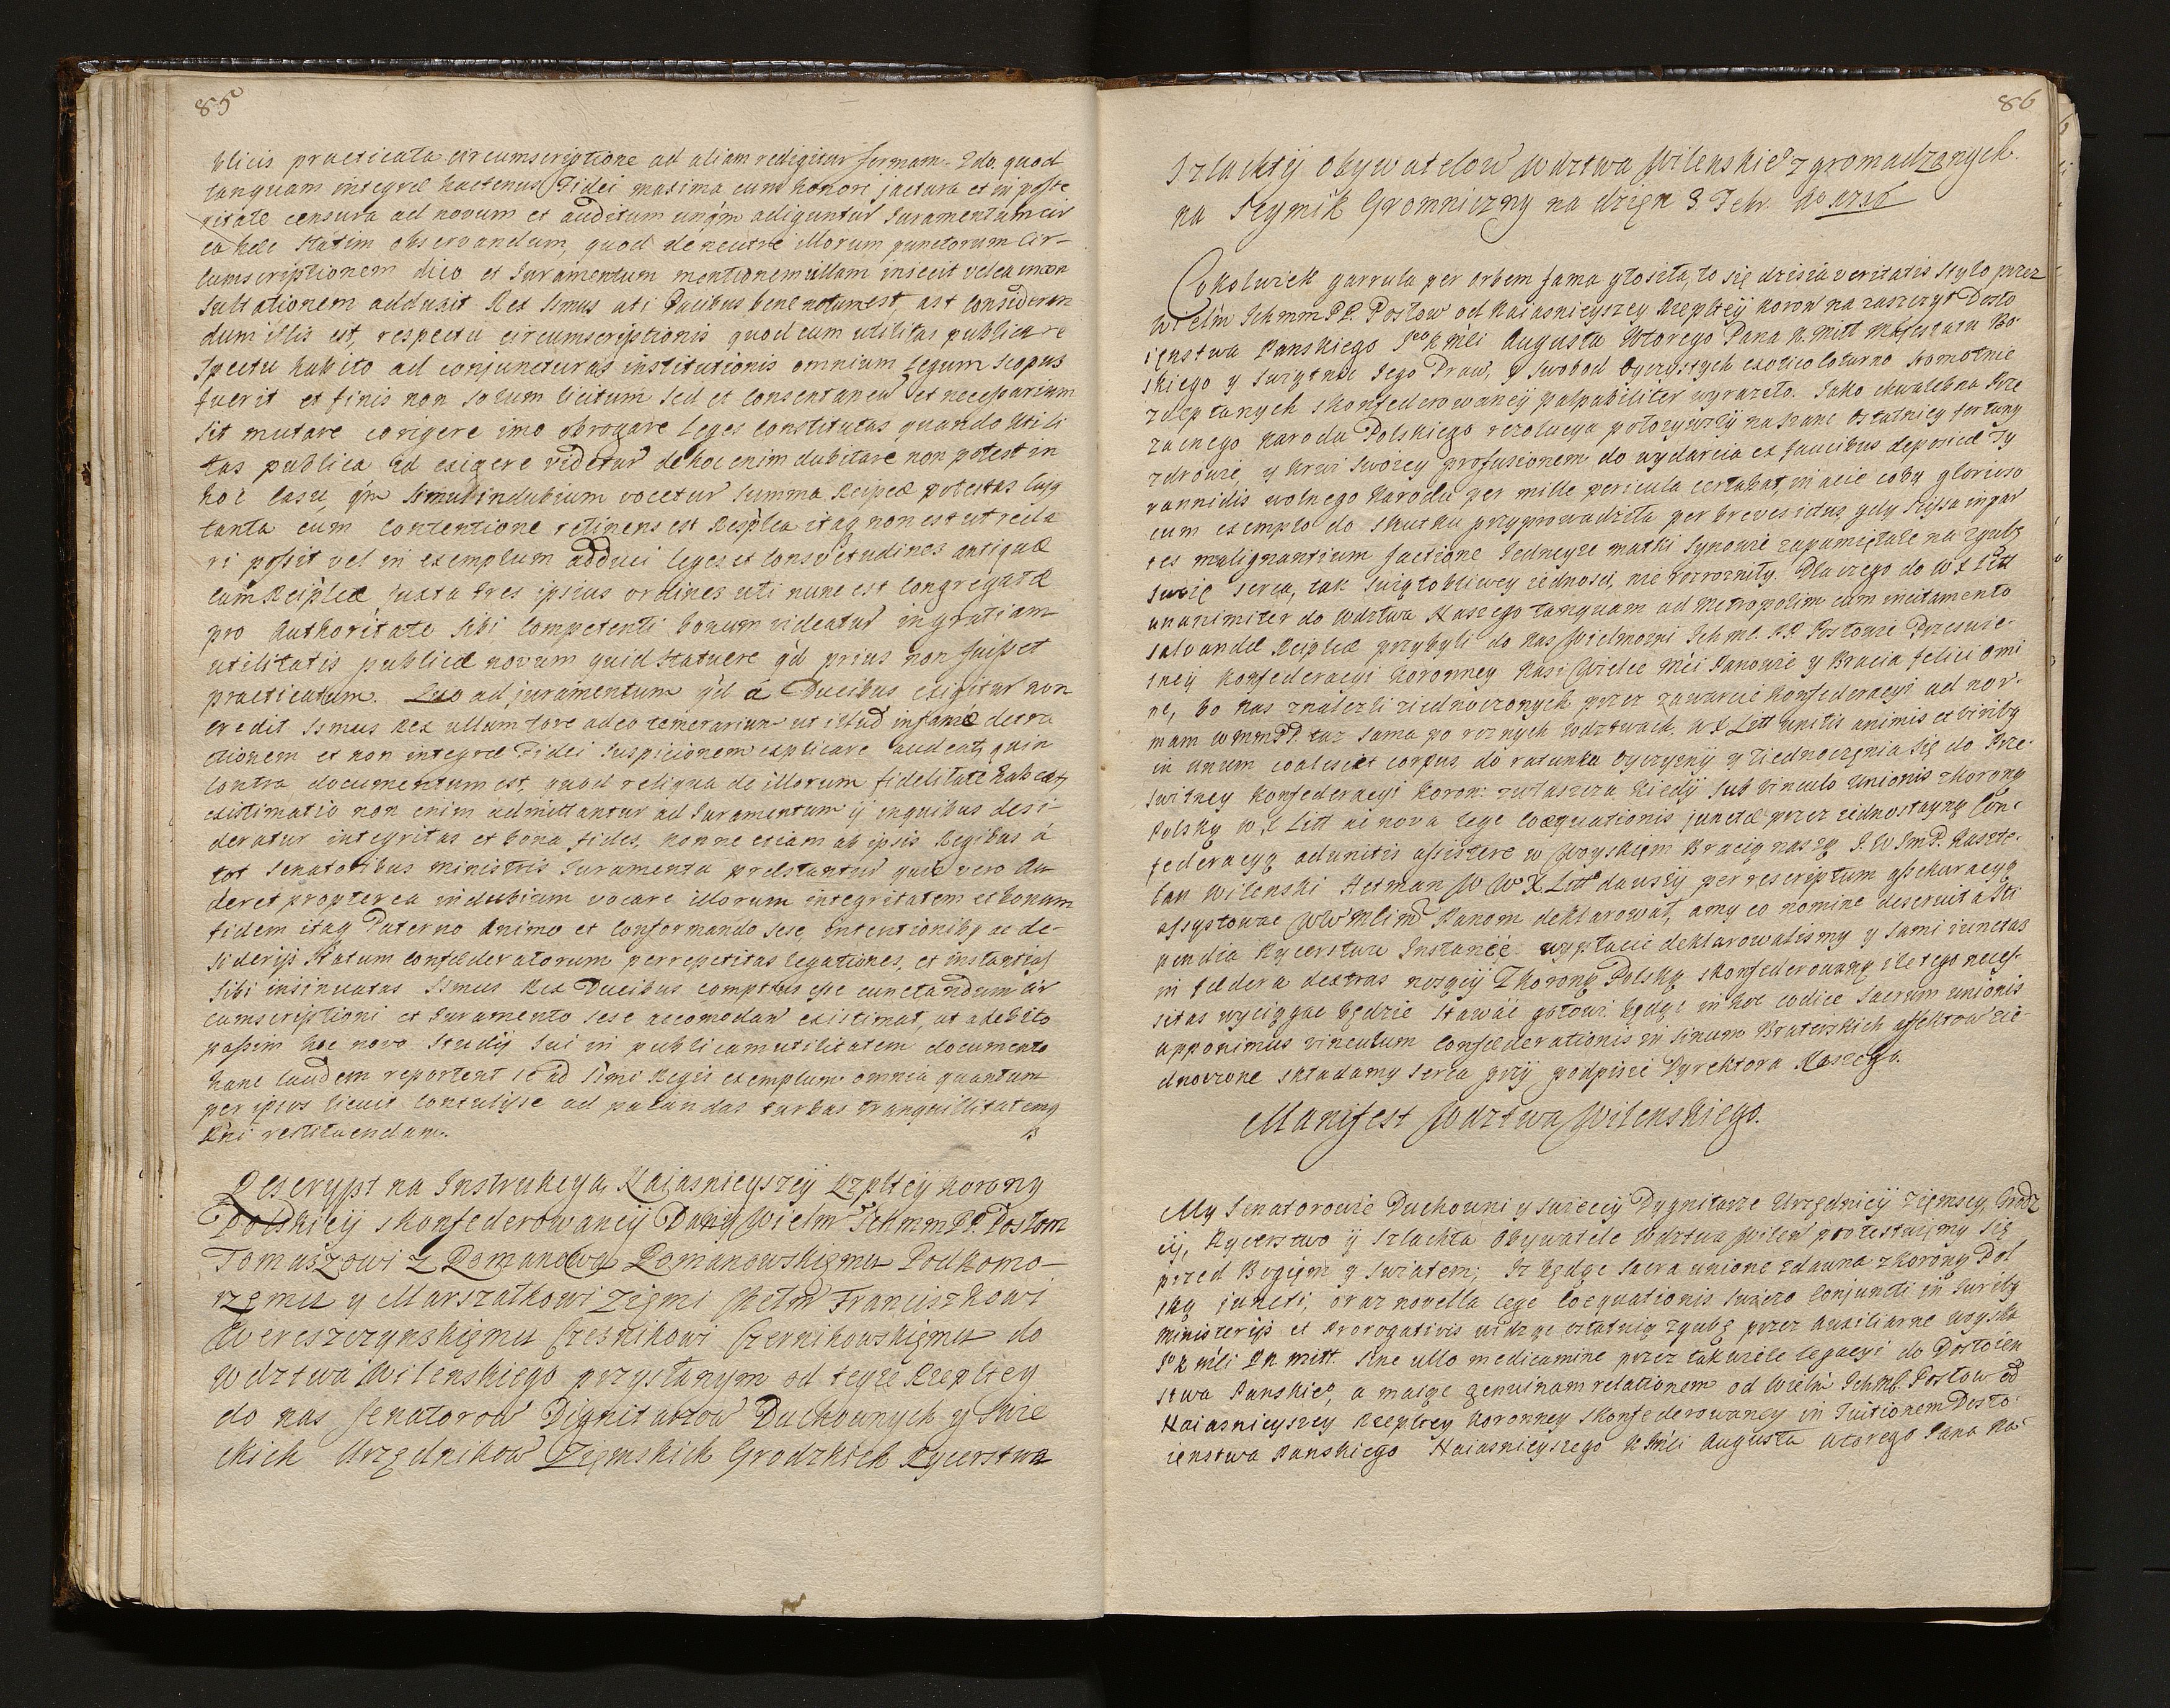 85
blicis practicata circumscriptione ad aliam redigitur formam. 2do. quod
tanquam integræ hactenus Fidei maxima cum honoris jactura et in poste
ritate censura ad novum et auditum unq̃m adiguntur Juramentum cir
ca hæc statim observandum, quod de neutro illorum punctorum Cir-
cumscriptionem dico et Juramentum mentionem ullam iniecit vel ea in con
sultationem adduxit Rex Smus uti Ducibus bene notum est, ast consideran
dum illis est, respectu circumscriptionis quod cum utilitas publica re
spectu habito ad conjuncturas institutionis omnium Legum scopus
fuerit et finis non solum licitum sed et consentaneu et necessarium
sit mutare corigere imo abrogare Leges constitutas quando utili
tas publica id exigere videtur de hoc enim dubitare non potest in
hoc casu, q̃m simul in dubium vocetur summa Reipcæ potestas cujq
tanta cum contentione retinens est Resplca itaq non est ut reda
ri possit vel in exemplum adduci leges et consvetudines antiquæ
cum Reiplcæ juxta tres ipsius ordines uti nunc est congregatæ
pro Authoritate sibi competenti bonum videatur in gratiam
utilitatis publicæ novum quid statuere q̃d prius non fuisset
practicatum. Quo ad juramentum q̃d á Ducibus exigitur non
credit Smus Rex ullum fore adeo temerarium ut illud infamiæ detra
ctionem et non integræ Fidei suspicionem explicare audeat, quin
contra documentum est, quod reliqua de illorum fidelitate habeat,
existimatio non enim admittantur ad Juramentum ij in quibus desi-
deratur integritas et bona fides, nonne etiam ab ipsis Regibus á
tot Senatoribus Ministris Juramenta præstantur quis vero Au
deret propterea in dubium vocare illorum integritatem et bonam
fidem itaq Paterno Animo et conformando sese, intentionibq ac de-
siderijs Statum confœderatorum per repetitas legationes, et instantias
sibi insinuatas Smus Rex Ducibus compertus esse cunctandum cir
cumscriptioni et Juramento sese accomodare existimat, ut adebito
passim hoc novo Studij sui in publicam utilitatem documento
hanc laudem reportent se ad Smi Regis exemplum omnia quantum
per ipsos licuit contulisse ad pacandas turbas tranquillitatemq
Rñi restituendam.
Reskrypt na Instrukcyą Naiasnieyszÿ Rzpltey Korony
Polskieÿ skonfederowaneÿ Dany Wielm Ichmm PP. Posłom
Tomaszowi z Romanowa Romanowskiemu Podkomo-
rzemu y Marszałkowi Ziemi Chełm Franciszkowi
Wereszczynskiemu Czesnikowi Czernikowskiemu do
Wdztwa Wilenskiego przysłanym od teyże Rzepltey
do nas Senatorow Dignitarzow Duchownych y Swie
ckich Urzędnikow Ziemskich Grodzkich Rycerstwa
86
Szlachtÿ Obywatelow Wdztwa Wilenskiego zgromadzonych
na Seymik Gromniczny na dzien 3. Febr. Ao 1716
Cokolwiek garrula per orbem fama głosiła, to się dzisia veritatis stylo przez
Wielm Ichmm PP. Posłow od Naiasnieyszey Rzepltey Koron na zaszczyt Dosto
ienstwa Panskiego Jeo K mśli Augusta Wtorego Pana N. Mitt Maiestatu Bo
skiego y Swiątnic Jego Praw, y Swobod Oyczystych exotico coturno sromotnie
zdeptanych skonfederowaneÿ palpabiliter wyraziło. Jako chwalebna Prze
zacnego Narodu Polskiego rezolucya położywszÿ na szanc ostatniey fortuny
zdrowie, y krwi swoiey profusionem do wydarcia ex faucibus deponicæ Ty
rannidis wolnego Narodu per mille pericula certabat, in acie coby glorioso
cum exemplo do skutku przyprowadziła per breves ictus, gdy scissa in par
tes malignantium factione Jedneyże matki synowie zapamiętałe na zgubę
swoię serca, tak swiątobliwey iedności, nie rozrożniły. Dlaczego do W X Litt
unanimiter do Wdztwa Naszego tanquam ad Metropolim cum incitamento
salvandæ Reiplcæ przybyli do Nas Wielmożni Ichmc. PP. Posłowie Przeswie-
tneÿ Konfederacyi Koronney Nasi Wielce Mći Panowie y Bracia felici omi
ne, bo nas znaleźli ziednoczonych przez zawarcie Konfederacyi ad nor-
mam WmmPP. taż sama po roznych Wdztwach. W X Litt unitis animis et viribq
in unum coalescit corpus do ratunku Oyczyznÿ y ziednoczenia się do Prze-
switney Konfederacyi Koron: zwłaszcza kiedÿ sub vinculo Unionis z Koroną
Polską W X Litt ac nova lege coæquationis junctæ przez iednostayną Con-
federacyą adunitis assistere w Woyskiem Bracią naszą J. W JmP. Kaszte-
lan Wilenski Hetman W W X Litto dawszÿ per rescriptum assekuracyą
assystowac WWmśćim Panom deklarował, a my eo nomine deservita Sti
pendia Rycerstwu Instancię wypłacić deklarowalismy y sami iunctas
in fœdera dextras nożeÿ z Koroną Polską skonfederowaną ile tego neces-
sitas wyciągac będzie stawać gotowi będąc in hoc codice sacrum unionis
apponimus vinculum confœderationis in sinum Braterskich affektow zie-
dnoczone składamy serca przÿ podpisie Dyrektora Naszego.
Manifest Wdztwa Wilenskiego.
My Senatorowie Duchowni y Swieccÿ Dygnitarze Urzędnicÿ Ziemscy, Grodz
cÿ, Rycerstwo ÿ Szlachta Obywatele Wdztwa Wilen protestuiemy się
przed Bogiem y Swiatem; Iż będąc sacra unione zdawna z Koroną Pol
ską juncti, oraz novella lege Coæquationis swiezo conjuncti in Juribq
Ministerijs et Prorogativis widząc ostatnią zgubę przez Auxiliarne woyska
Jo K mśli P. N. Mitt. sine ullo medicamine przez tak wiele legacyi do Dostoien
stwa Panskieo, a maiąc genuinam relationem od Wielm Ichmć. Posłow od
Naiasnieyszey Rzepltey Koronney skonfederowaney in Tuitionem Dosto-
ienstwa Panskiego Naiasnieyszego K Jmśli Augusta Wtorego Pana Na